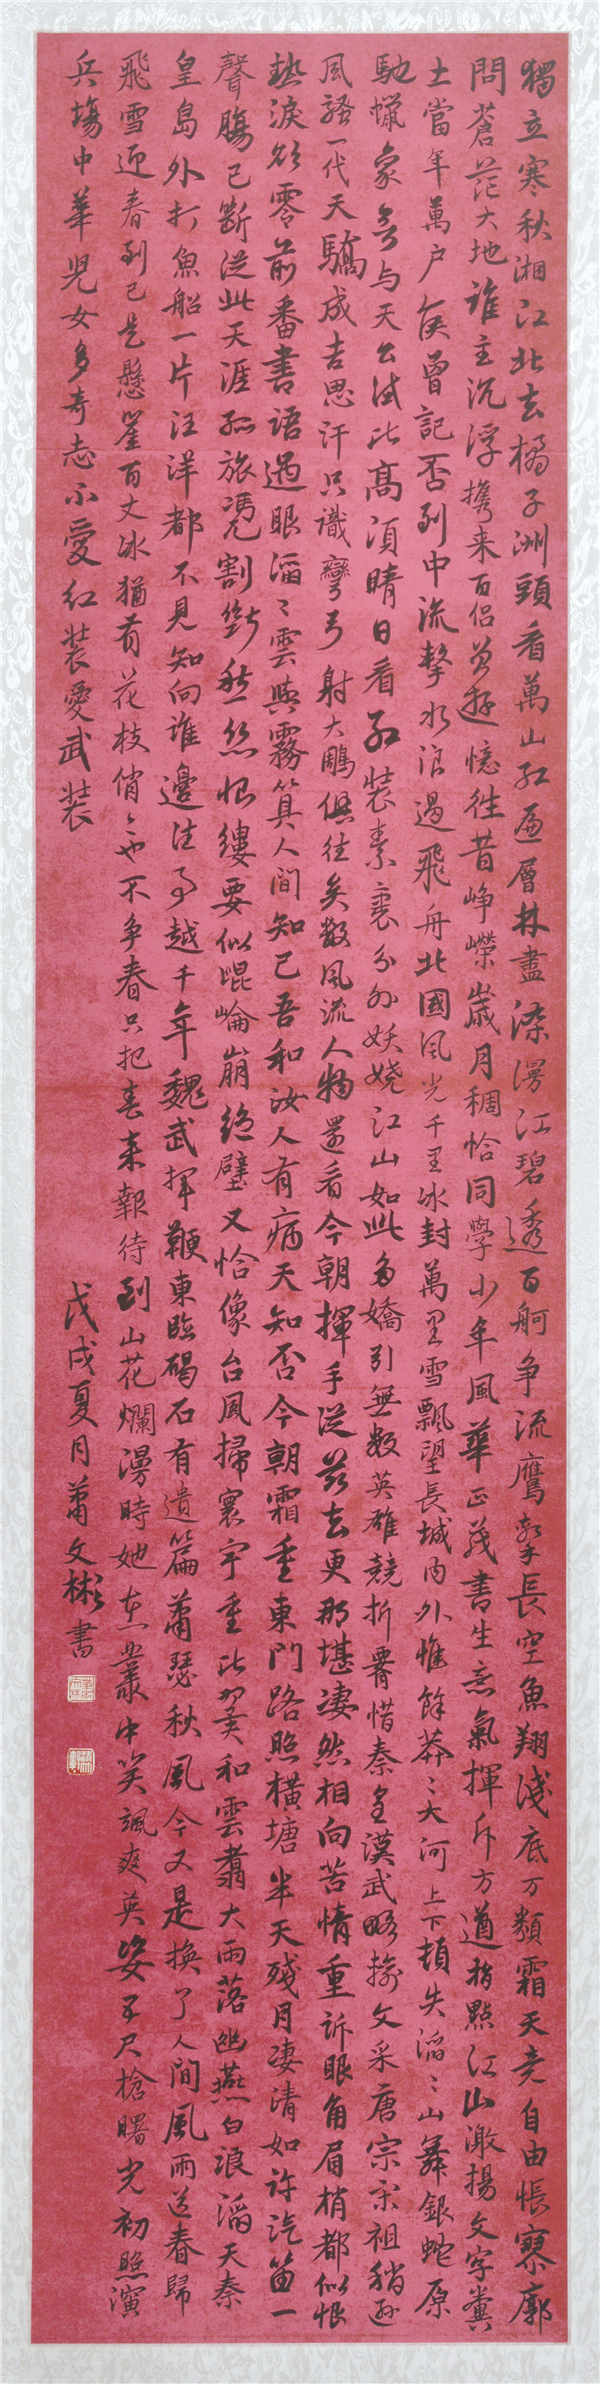 獨立寒秋湘江北去橘子洲頭看萬山紅遍層林盡染漫江碧透百舸爭流鷹擊長空魚翔淺底万類霜天競自由悵寥廓
問蒼茫大地誰主沉浮攜来百侶曾遊憶往昔崢嶸歲月稠恰同學少年風華正茂書生意氣揮斥方遒指點江山激揚文字糞
土當年萬户侯曾記否到中流擊水浪遏飛舟北國風光千里冰封萬里雪飄望長城内外惟餘莽〻大河上下頓失滔〻山舞銀蛇原
馳蠟象欲与天公試比高須晴日看紅裝素裹分外妖嬈江山如此多嬌引無数英雄競折腰惜秦皇漢武略輸文采唐宗宋祖稍遜
風騷一代天驕成吉思汗只識彎弓射大雕俱往矣数風流人物還看今朝揮手從兹去更那堪凄然相向苦情重訴眼角眉梢都似恨
熱淚欲零前番書語過眼滔〻雲與霧算人間知己吾和汝人有病天知否今朝霜重東門路照橫塘半天殘月凄清如許汽笛一
聲腸已斷從此天涯孤旅憑割斷愁絲恨縷要似崐崙崩絕壁又恰像台風掃寰宇重比翼和雲翥大雨落幽燕白浪滔天秦
皇島外打魚船一片汪洋都不見知向誰邊往事越千年魏武揮鞭東臨碣石有遺篇蕭瑟秋風今又是換了人間風雨送春歸
飛雪迎春到已是懸崖百丈冰猶有花枝俏〻也不爭春只把春來報待到山花爛漫時她在叢中笑颯爽英姿五尺槍曙光初照演
兵場中華兒女多奇志不愛紅裝愛武裝
戊戌夏月蕭文彬書